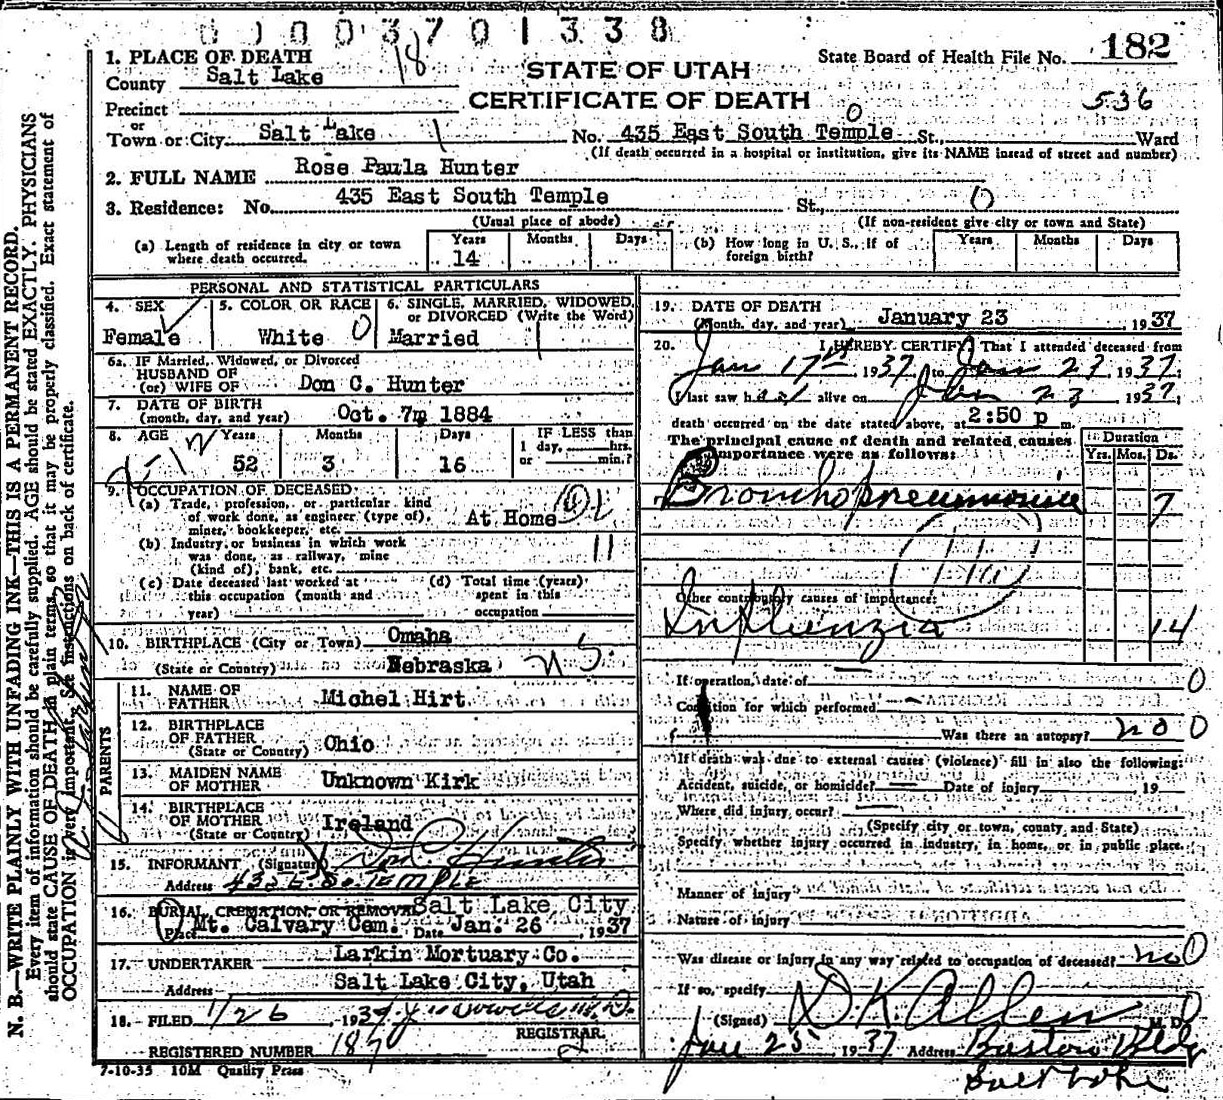 00003701338
1. PLACE OF DEATH
County Salt Lake 18
STATE OF UTAH
State Board of Health File No. 182
Precinct
CERTIFICATE OF DEATH
536
or
Town or City Salt Lake 1 No. 435 East South Temple St., Ward
0
(If death occurred in a hospital or institution, give its NAME instead of street and number)
2. FULL NAME Rose Paula Hunter
3. Residence: No. 435 East South Temple St., 0
(Usual place of abode) (If non-resident give city or town and State)
(a) Length of residence in city or town where death occurred. Years 14 Months Days
(b) How long in U. S., if of foreign birth? Years Months Days
PERSONAL AND STATISTICAL PARTICULARS
4. SEX
Female
5. COLOR OR RACE
White 0
6. SINGLE, MARRIED, WIDOWED, or DIVORCED (Write the Word)
Married 1
6a. IF Married, Widowed, or Divorced
HUSBAND OF
(or) WIFE OF Don C. Hunter
7. DATE OF BIRTH
(month, day, and year) Oct. 7m 1884
8. AGE Years Months Days IF LESS than
52 3 16 1 day, hrs.
or min.?
9. OCCUPATION OF DECEASED
(a) Trade, profession, or particular kind
of work done, as engineer (type of),
miner, bookkeeper, etc. At Home
(b) Industry or business in which work 11
was done, as railway, mine
(kind of), bank, etc.
(c) Date deceased last worked at
this occupation (month and
year)
(d) Total time (years)
spent in this
occupation
10. BIRTHPLACE (City or Town) Omaha
(State or Country) Nebraska
11. NAME OF
FATHER Michel Hirt
12. BIRTHPLACE
OF FATHER
(State or Country) Ohio
13. MAIDEN NAME
OF MOTHER Unknown Kirk
14. BIRTHPLACE
OF MOTHER
(State or Country) Ireland
PARENTS
15. INFORMANT (Signature) Don C Hunter
Address 435 E. So. TEMPLE
16. BURIAL, CREMATION, OR REMOVAL Salt Lake City
Place Mt. Calvary Cem. Date Jan. 26, 1937
17. UNDERTAKER Larkin Mortuary Co.
Address Salt Lake City, Utah
18. FILED 1/26, 1937
REGISTRAR.
REGISTERED NUMBER 187
7-10-35 10M Quality Press
19. DATE OF DEATH
(Month, day, and year) January 23 1937
20. I HEREBY CERTIFY, That I attended deceased from
Jan 17th 1937, to Jan 23 1937;
I last saw her alive on Jan 23 1937;
death occurred on the date stated above, at 2:50 p m.
The principal cause of death and related causes
of importance were as follows:
Duration
Yrs. Mos. Ds.
Bronchopneumonia 7
Other contributory causes of importance:
Influenzia 14
If operation, date of 0
Condition for which performed
Was there an autopsy? no 0
If death was due to external causes (violence) fill in also the following:
Accident, suicide, or homicide? Date of injury 19
Where did injury occur?
(Specify city or town, county and State)
Specify whether injury occurred in industry, in home, or in public place.
Manner of injury
Nature of injury
Was disease or injury in any way related to occupation of deceased? no 0
If so, specify
(Signed) D K Allen M. D.
Jan 25, 1937 Address Bldg
Salt Lake
N. B.—WRITE PLAINLY WITH UNFADING INK—THIS IS A PERMANENT RECORD.
Every item of information should be carefully supplied. AGE should be stated EXACTLY. PHYSICIANS
should state CAUSE OF DEATH in plain terms, so that it may be properly classified. Exact statement of
OCCUPATION is very important. See instructions on back of certificate.